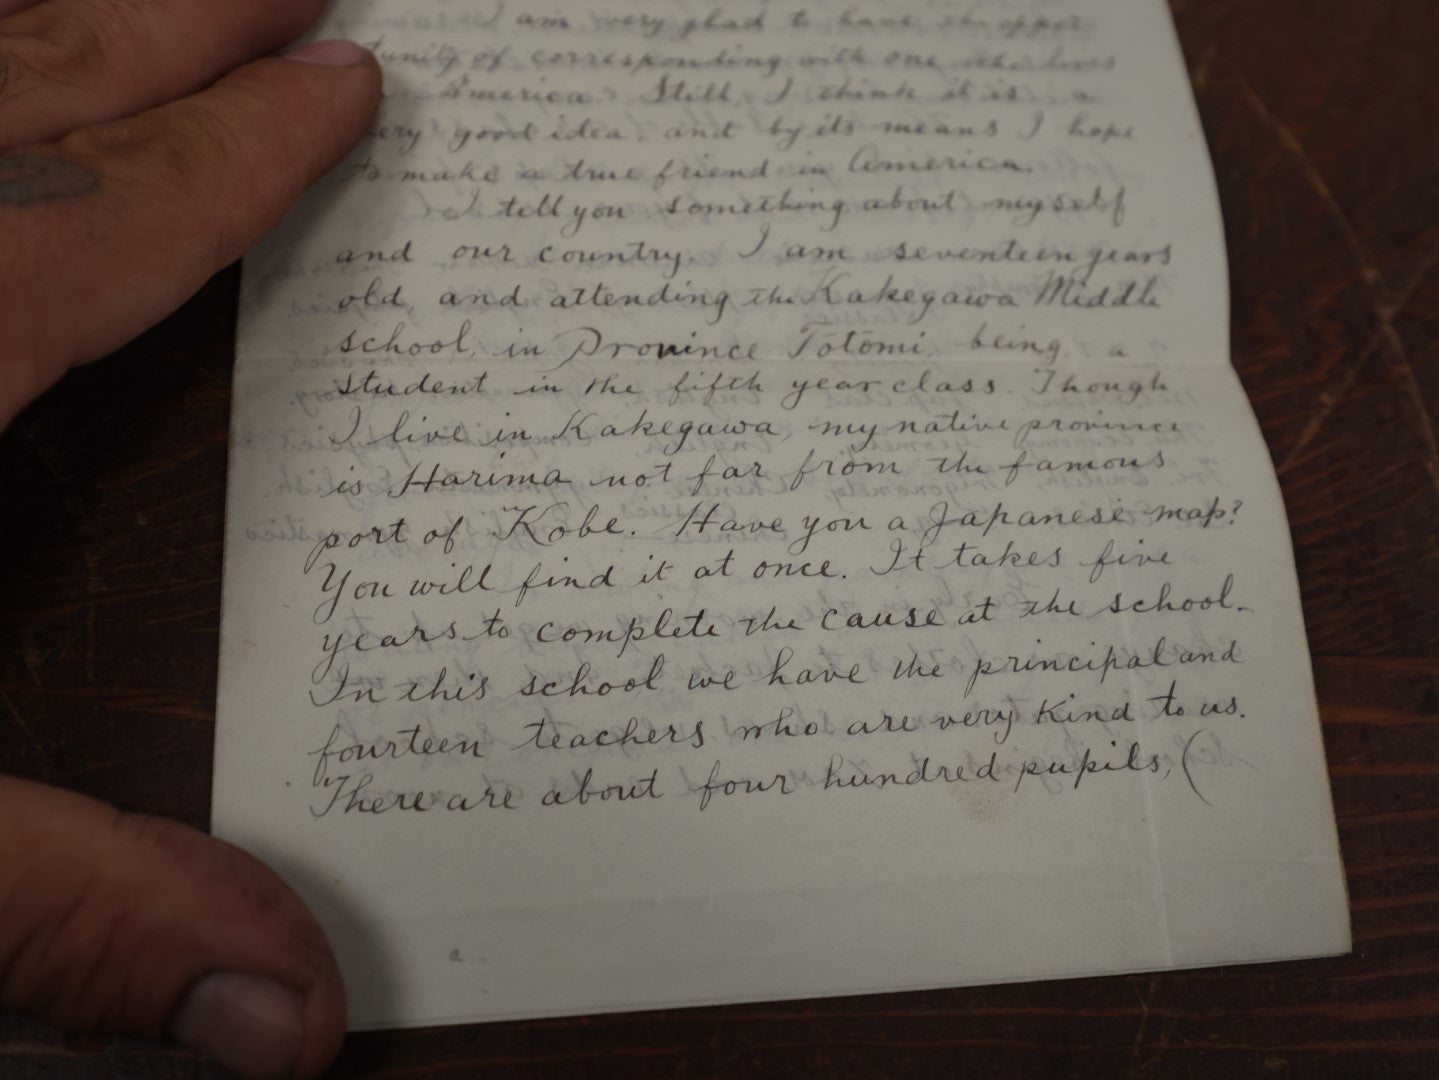 I am very glad to have the oppor-
tunity of corresponding with one who lives
America. Still, I think it is a
very good idea, and by its means I hope
to make a true friend in America.
I tell you something about myself
and our country. I am seventeen years
old, and attending the Kakegawa Middle
school, in Province Totomi, being a
student in the fifth year class. Though
I live in Kakegawa, my native province
is Harima not far from the famous
port of Kobe. Have you a Japanese map?
You will find it at once. It takes five
years to complete the cause at the school.
In this school we have the principal and
fourteen teachers who are very kind to us.
There are about four hundred pupils, (